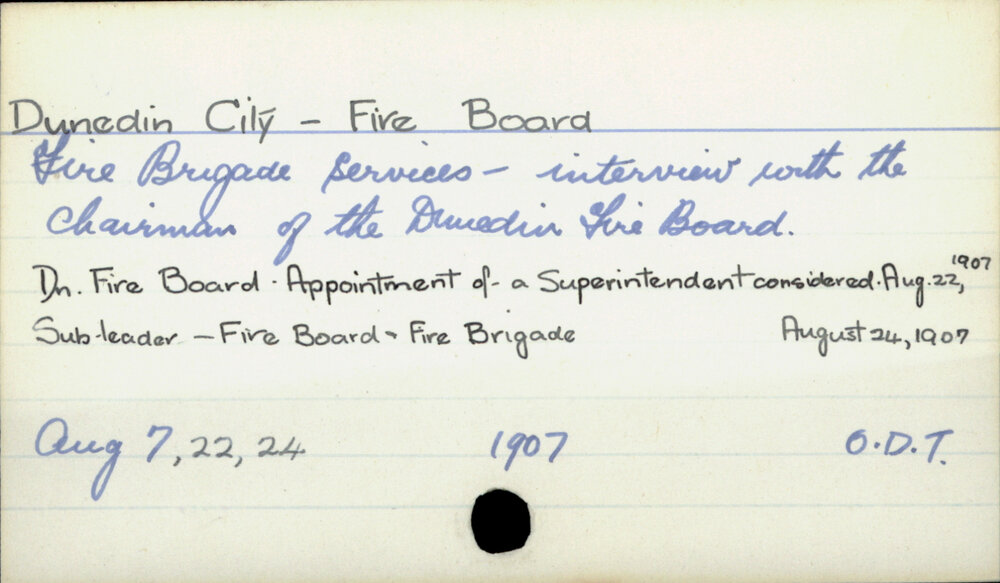 Dunedin City - Fire Board
Fire Brigade Services - interview with the
Chairman of the Dunedin Fire Board.
Dn. Fire Board. Appointment of - a Superintendent considered. Aug. 22, 1907
Sub-leader - Fire Board - Fire Brigade August 24, 1907
Aug 7, 22, 24 1907 O.D.T.